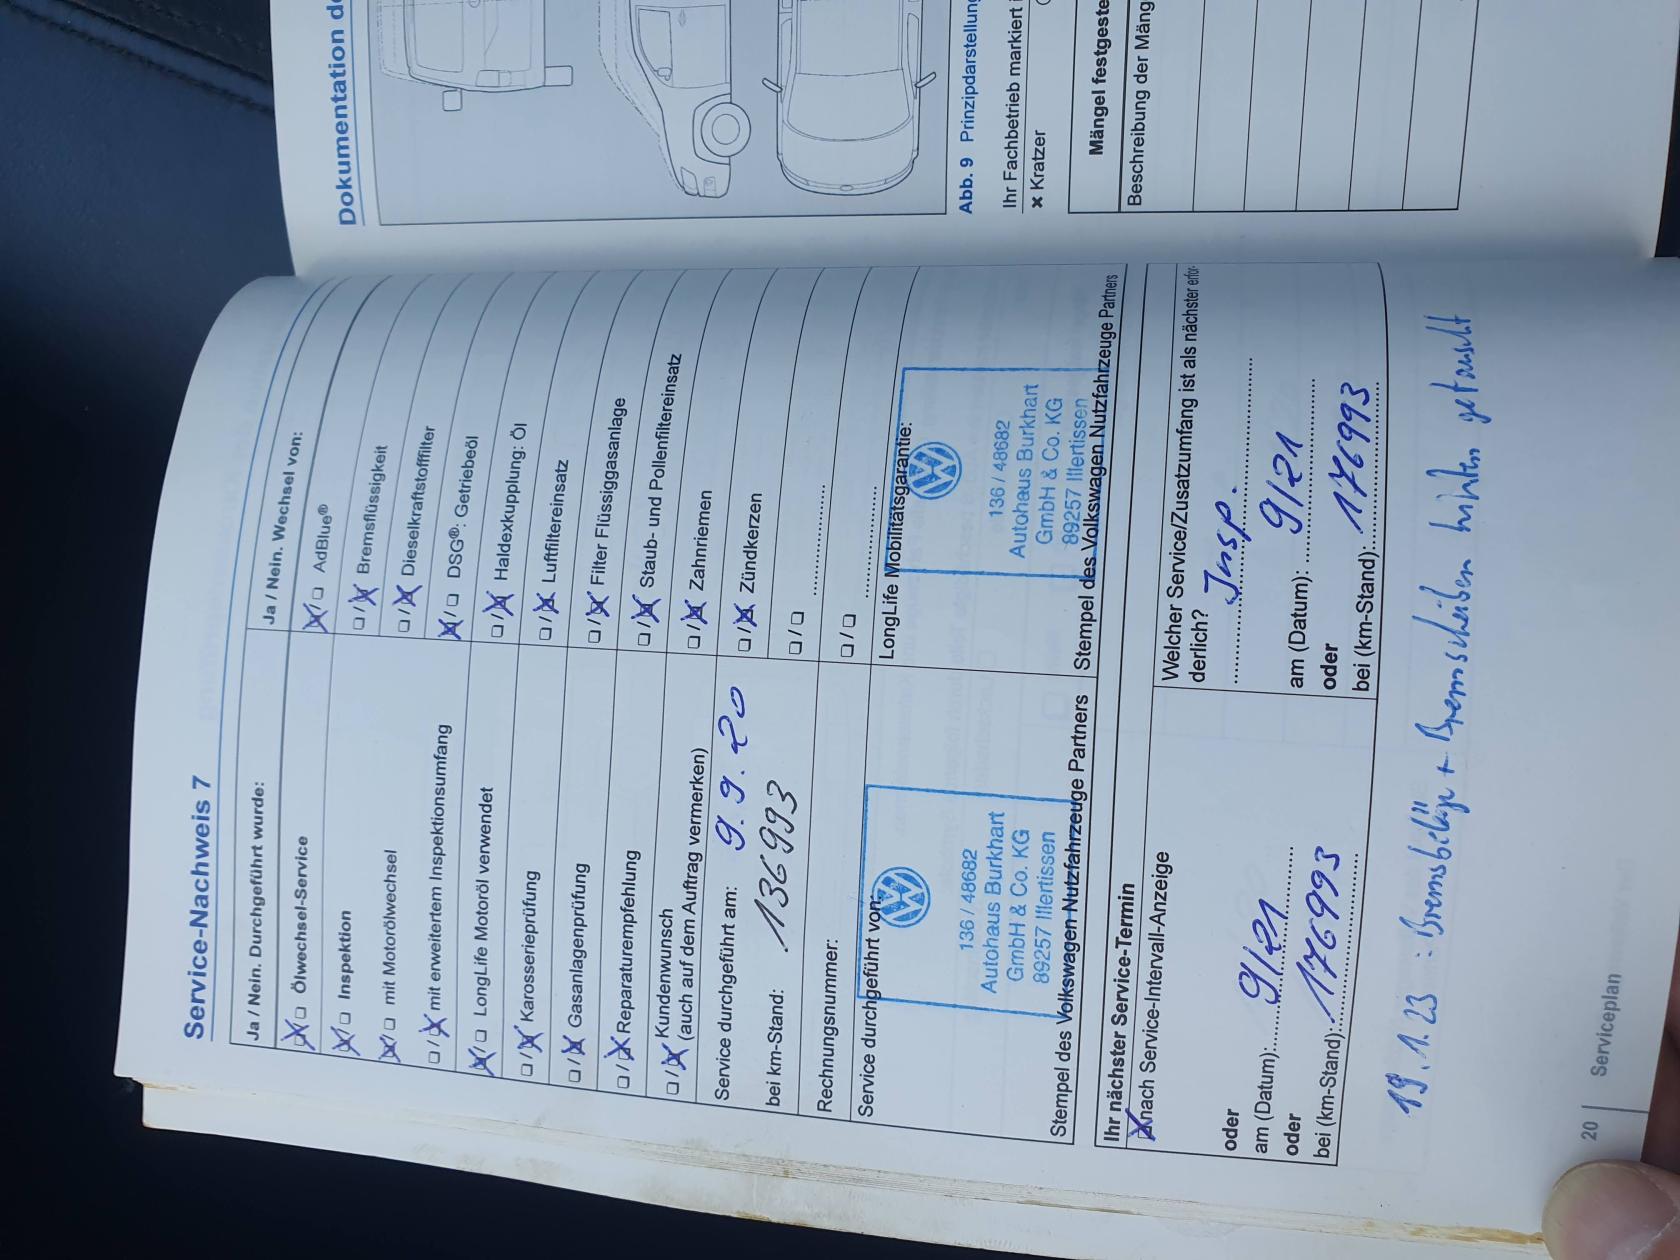 Service-Nachweis 7
Ja / Nein. Durchgeführt wurde:
☒/☐ Ölwechsel-Service
☒/☐ Inspektion
☒/☐ mit Motorölwechsel
☐/☒ mit erweitertem Inspektionsumfang
☒/☐ LongLife Motoröl verwendet
☐/☒ Karosserieprüfung
☐/☒ Gasanlagenprüfung
☐/☒ Reparaturempfehlung
☐/☒ Kundenwunsch
(auch auf dem Auftrag vermerken)
Service durchgeführt am: 9.9.20
bei km-Stand: 136993
Rechnungsnummer:
Service durchgeführt von:
136 / 48682
Autohaus Burkhart
GmbH & Co. KG
89257 Illertissen
Stempel des Volkswagen Nutzfahrzeuge Partners
Ja / Nein. Wechsel von:
☒/☐ AdBlue®
☐/☒ Bremsflüssigkeit
☐/☒ Dieselkraftstofffilter
☒/☐ DSG®: Getriebeöl
☐/☒ Haldexkupplung: Öl
☐/☒ Luftfiltereinsatz
☐/☒ Filter Flüssiggasanlage
☐/☒ Staub- und Pollenfiltereinsatz
☐/☒ Zahnriemen
☐/☒ Zündkerzen
☐/☐
☐/☐
LongLife Mobilitätsgarantie:
136 / 48682
Autohaus Burkhart
GmbH & Co. KG
89257 Illertissen
Stempel des Volkswagen Nutzfahrzeuge Partners
Ihr nächster Service-Termin
☒ nach Service-Intervall-Anzeige
oder
am (Datum): 9/21
oder
bei (km-Stand): 176993
Welcher Service/Zusatzumfang ist als nächster erfor-
derlich?
Insp.
am (Datum): 9/21
oder
bei (km-Stand): 176993
19.1.23 : Bremsbeläge + Bremsscheiben hinten getauscht
20 Serviceplan
Dokumentation
Abb. 9 Prinzipdarstellung
Ihr Fachbetrieb markiert
× Kratzer
Mängel
Beschreibung der